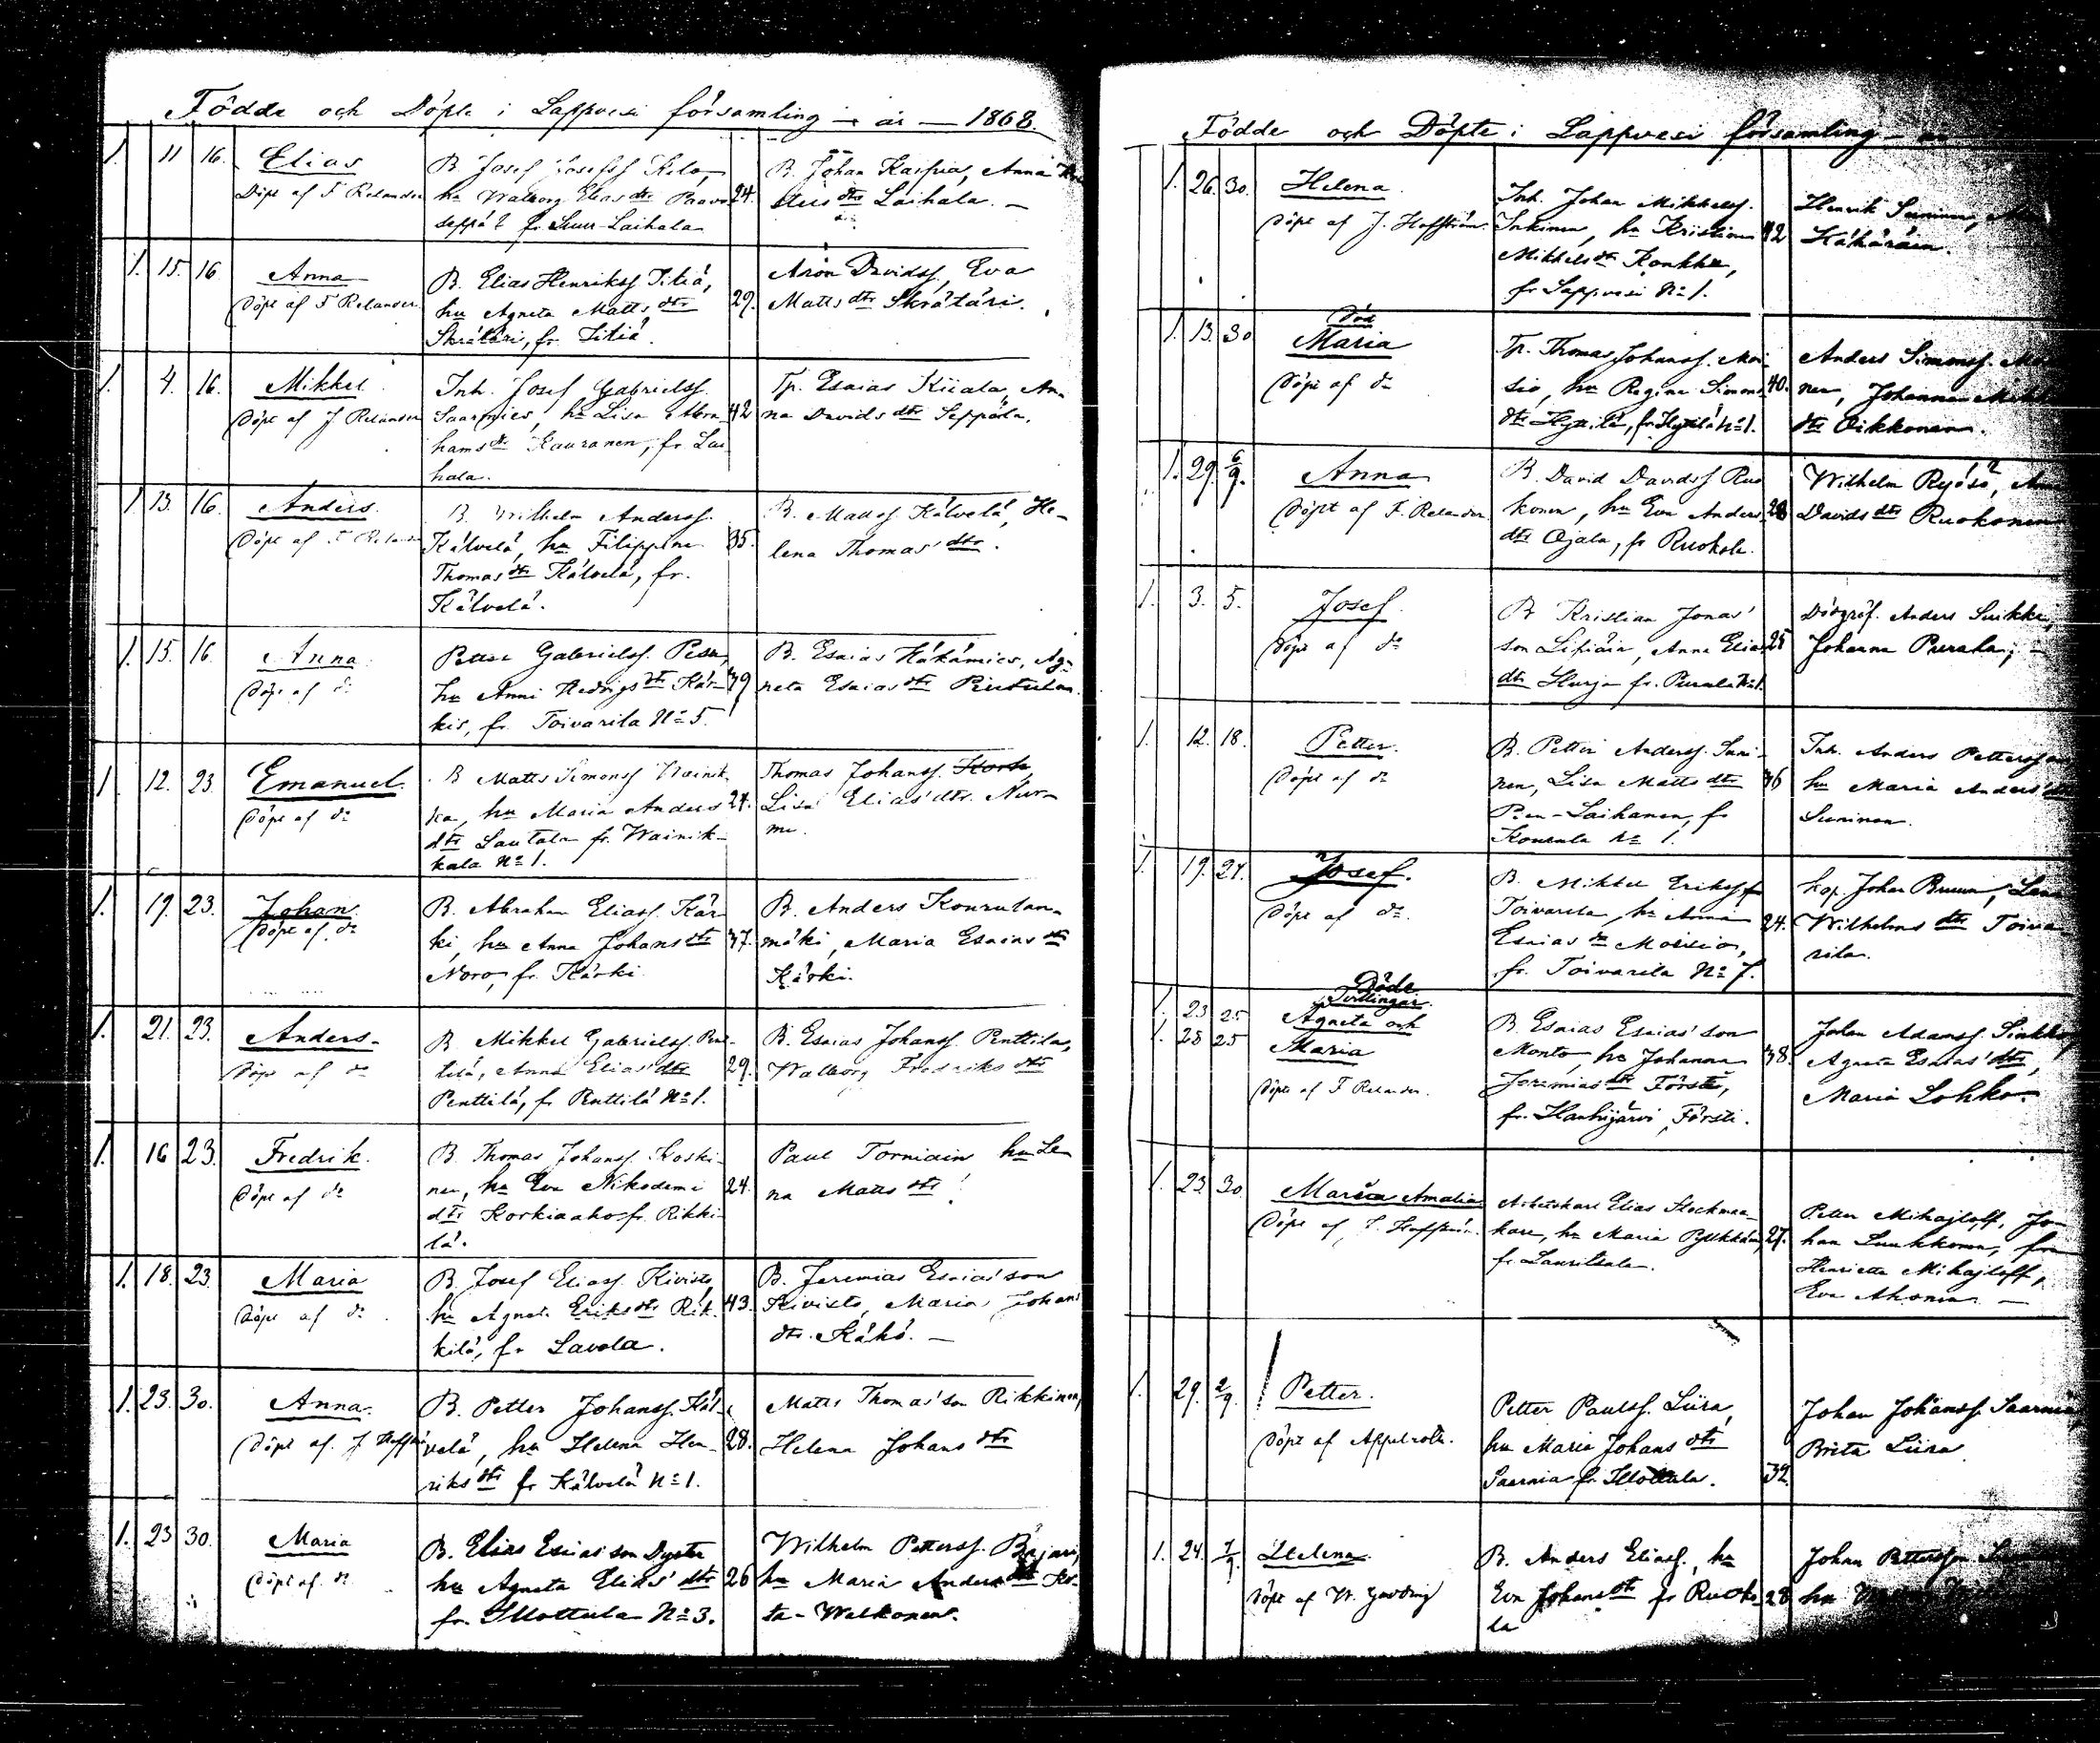 Födde och Döpte i Lappvesi församling - år - 1868.
1. 11 16. Elias
Döpt af F Relander
B. Josef Josefss Kilo,
hu Walborg Elias dtr Paavo 24.
seppä fr Suur-Laihala
B. Johan Kaipia, Anna
dtr Laihala. -
1. 15. 16. Anna
Döpt af F Relander.
B. Elias Henrikss Titiä,
hu Agneta Matts dtr 29.
Skrätäri, fr Titiä.
Aron Davidss, Eva
Matts dtr Skrätäri.
1. 4. 16. Mikkel
Döpt af J Relander
Inh. Josef Gabrielss.
Saarnies, hu Lisa Abra- 42
hams dr Kauranen, fr Lai
hala.
Tp. Esaias Kiiala, An-
na Davids dtr Seppälä.
1 13. 16. Anders.
Döpt af F Relander
B. Wilhelm Anderss.
Kälvelä, hu Filippine 35.
Thomas dtr Kälvelä, fr.
Kälvelä.
B. Matts Kälvelä, He-
lena Thomas dtr.
1. 15. 16. Anna
Döpt af do
Petter Gabrielss. Pesu,
hu Anni Hedvigs dtr Kär- 39
kis, fr. Toivarila No 5.
B. Esaias Häkämies, Ag-
neta Esaias dtr
1. 12. 23. Emanuel.
Döpt af do
B Matts Simonss Wainik
ka, hu Maria Anders 24.
dtr Lautala fr. Wainik-
kala No 1.
Thomas Johanss.
Lisa Elias dtr. Nur-
mi.
1. 19. 23. Johan
Döpt af do
B. Abraham Eliass. Kär
ki, hu Anna Johans dtr 37.
Noro, fr. Kärki
B. Anders Konrulan-
mäki, Maria Esaias dtr
Kärki.
1. 21. 23. Anders-
Döpt af do
B. Mikkel Gabrielss. Pent-
tilä, Anna Elias dtr 29.
Penttilä, fr Penttilä No 1.
B. Esaias Johanss. Penttilä,
Walborg Fredriks dtr
1. 16 23. Fredrik.
Döpt af do
B. Thomas Johanss. Koski-
nen, hu Eva Nikodemi 24.
dtr Korkiaaho fr. Rikki-
lä.
Paul Torniain hu Le
na Matts dtr
1. 18. 23. Maria
Döpt af do
B. Josef Eliass. Kivistö,
hu Agneta Eriks dtr Rik- 43.
kilä, fr Lavola.
B. Jeremias Esaias'son
Kivistö, Maria Johans
dtr. Kähö. -
1. 23. 30. Anna.
Döpt af. J Hoffström
B. Petter Johanss. Käl-
velä, hu Helena Hen- 28.
riks dtr fr Kälvelä No 1.
Matts Thomas'son Rikkinen,
Helena Johans dtr
1. 23 30. Maria
Döpt af do
B. Elias Esaias'son Dyster
hu Agneta Elias' dtr 26
fr. Illottula No 3.
Wilhelm Petterss. Bajari,
hu Maria Anders dtr Ko-
ta-Walkonen.
Födde och Döpte i Lappvesi församling - år
1. 26. 30. Helena.
Döpt af J. Hoffström.
Inh. Johan Mikkelss.
Inkinen, hu Kristina 42
Mikkels dtr Konkka,
fr Lappvesi No 1.
Henrik Suninen,
Häkäräin.
1. 13. 30. Död
Maria
Döpt af do
Tp. Thomas Johanss. Moi-
sio, hu Regina Simons 40.
dtr Hyttilä, fr Hyttilä No 1.
Anders Simonss.
nen, Johanna Mikk
dtr Oikkonen.
1. 29. 6/9. Anna
Döpt af F. Relander.
B. David Davidss Ruo
konen, hu Eva Anders 28
dtr Ojala, fr Ruokola.
Wilhelm Ryösö,
Davids dtr Ruokonen
1. 3. 5. Josef.
Döpt af do
B Kristian Jonas'
son Lipiäin, Anna Elias 25
dtr Hurja fr. Purala No 1.
Anders Suikki,
Johanna Purala; -
1. 12. 18. Petter.
Döpt af do
B. Petter Anderss. Suni-
nen, Lisa Matts dtr 36
Pien-Laihanen, fr
Konrula No 1.
Inh. Anders Petterss
hu Maria Anders' dtr
Suninen.
1. 19. 24. Josef.
Döpt af do.
B. Mikkel Erikss fr
Toivarila, hu Anna 24.
Esaias dr Moisio,
fr. Toivarila No 7.
Kop. Johan Bruun,
Wilhelms dtr Toiva-
rila.
Döde
Tvillingar.
1. 23 25 Agneta och
1. 23 25 Maria
Döpt af F Relander.
B. Esaias Esaias'son
Monto, hu Johanna 38.
Jeremias dtr Försti,
fr. Hanhijärvi, Försti.
Johan Adamss. Sinkko,
Agneta Esaias' dtr,
Maria Lohko.
1. 23. 30. Maria Amalia
Döpt af J. Hoffström.
Arbetskarl Elias Stockma-
kare, hu Maria 27.
fr Lauritsala.
Petter Mihajloff, Jo-
han Luukkonen, fru
Henrietta Mihajloff,
Eva Ahonen -
1. 29. 2/9. Petter.
Döpt af Appelroth.
Petter Paulss. Liira,
hu Maria Johans dtr
Saarnia fr. Illottula. 32.
Johan Johanss. Saarnia,
Brita Liira
1. 24. 7/9. Helena.
Döpt af W.
B. Anders Eliass, hu
Eva Johans dtr fr Ruoko- 28
la
Johan Pettersson
hu